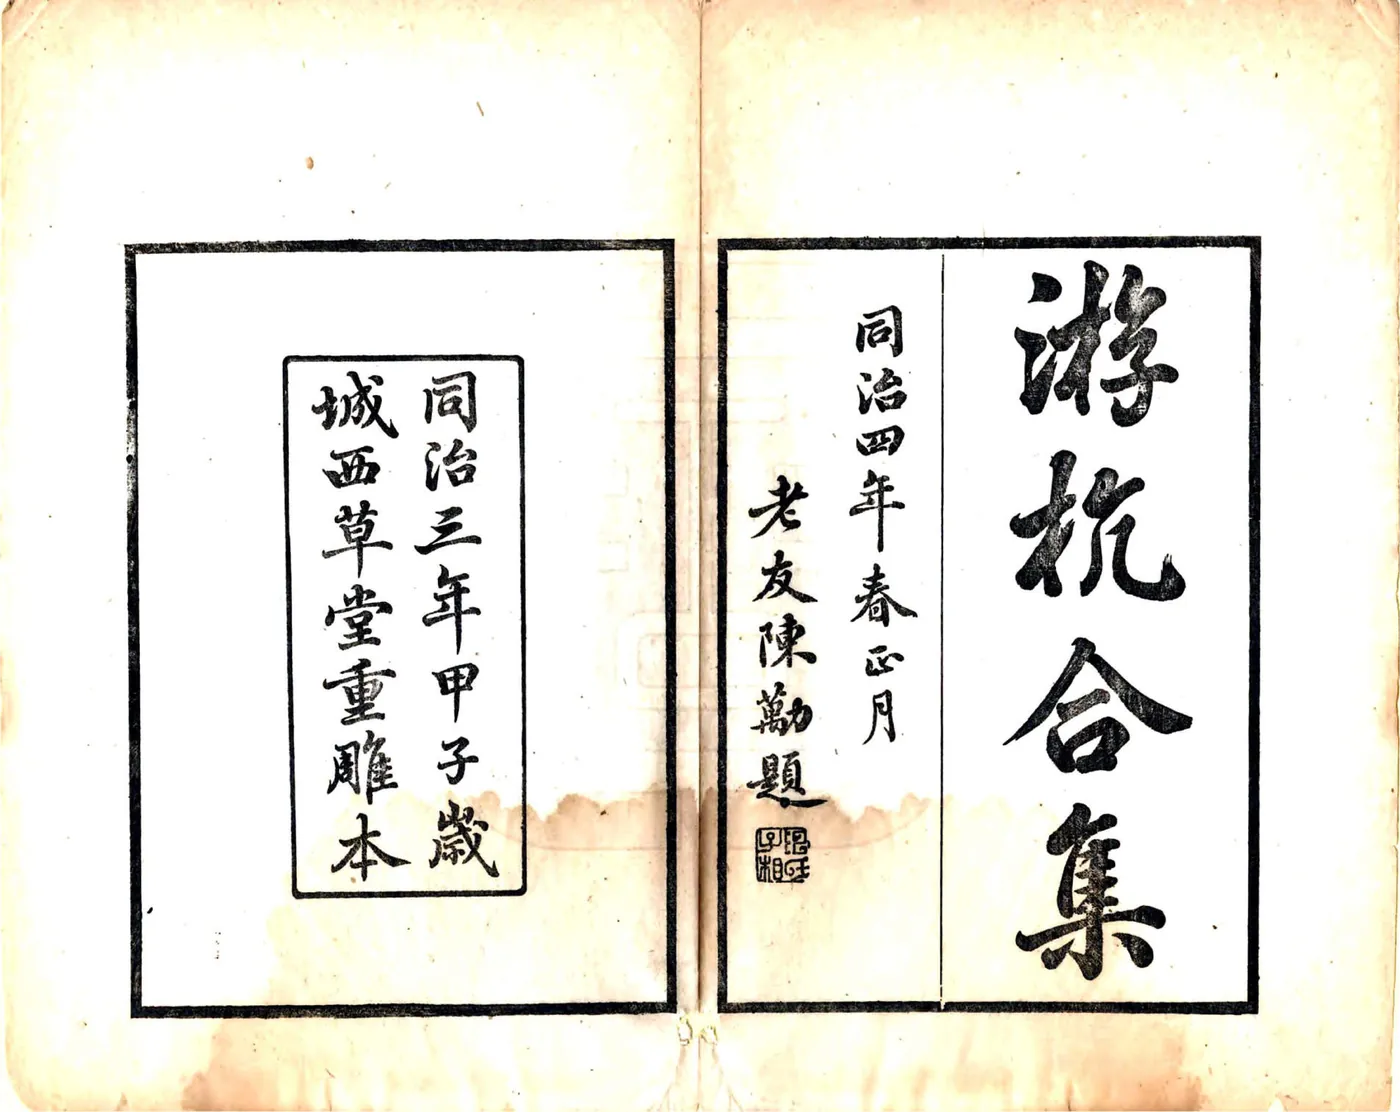 游杭合集
同治四年春正月
老友陳勱題
子相
同治三年甲子歲
城西草堂重雕本